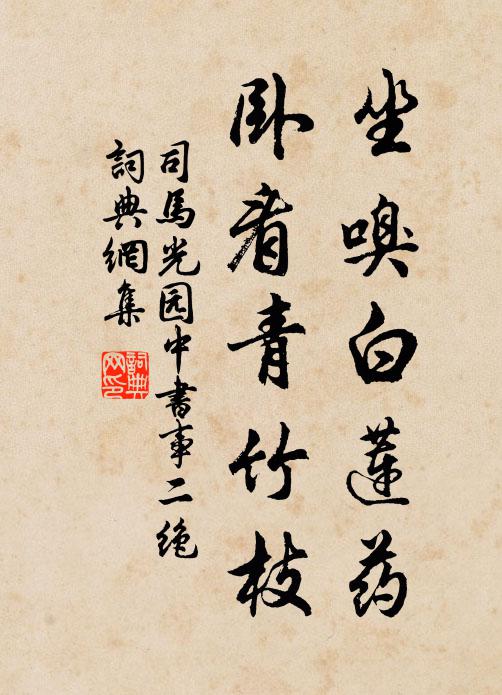 坐嗅白莲药
卧看青竹枝
司馬光园中書事二绝
詞典網集
詞典网印